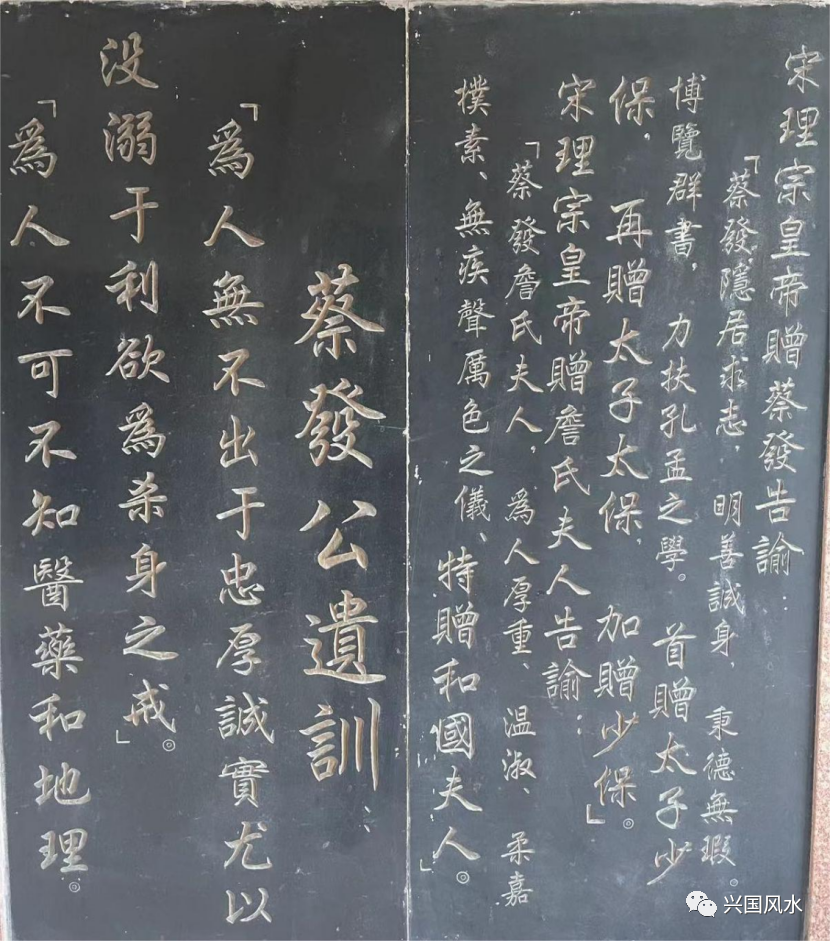 宋理宗皇帝贈蔡發告諭：
「蔡發隱居求志，明善誠身，秉德無瑕。
博覽群書，力扶孔孟之學。首贈太子少
保，再贈太子太保，加贈少保」。
宋理宗皇帝贈詹氏夫人告諭：
「蔡發詹氏夫人，為人厚重、温淑、柔嘉
樸素、無疾聲厲色之儀、特贈和國夫人」。
蔡發公遺訓：
「為人無不出于忠厚誠實尤以
没溺于利欲為杀身之戒」。
「為人不可不知醫藥和地理。
兴国风水